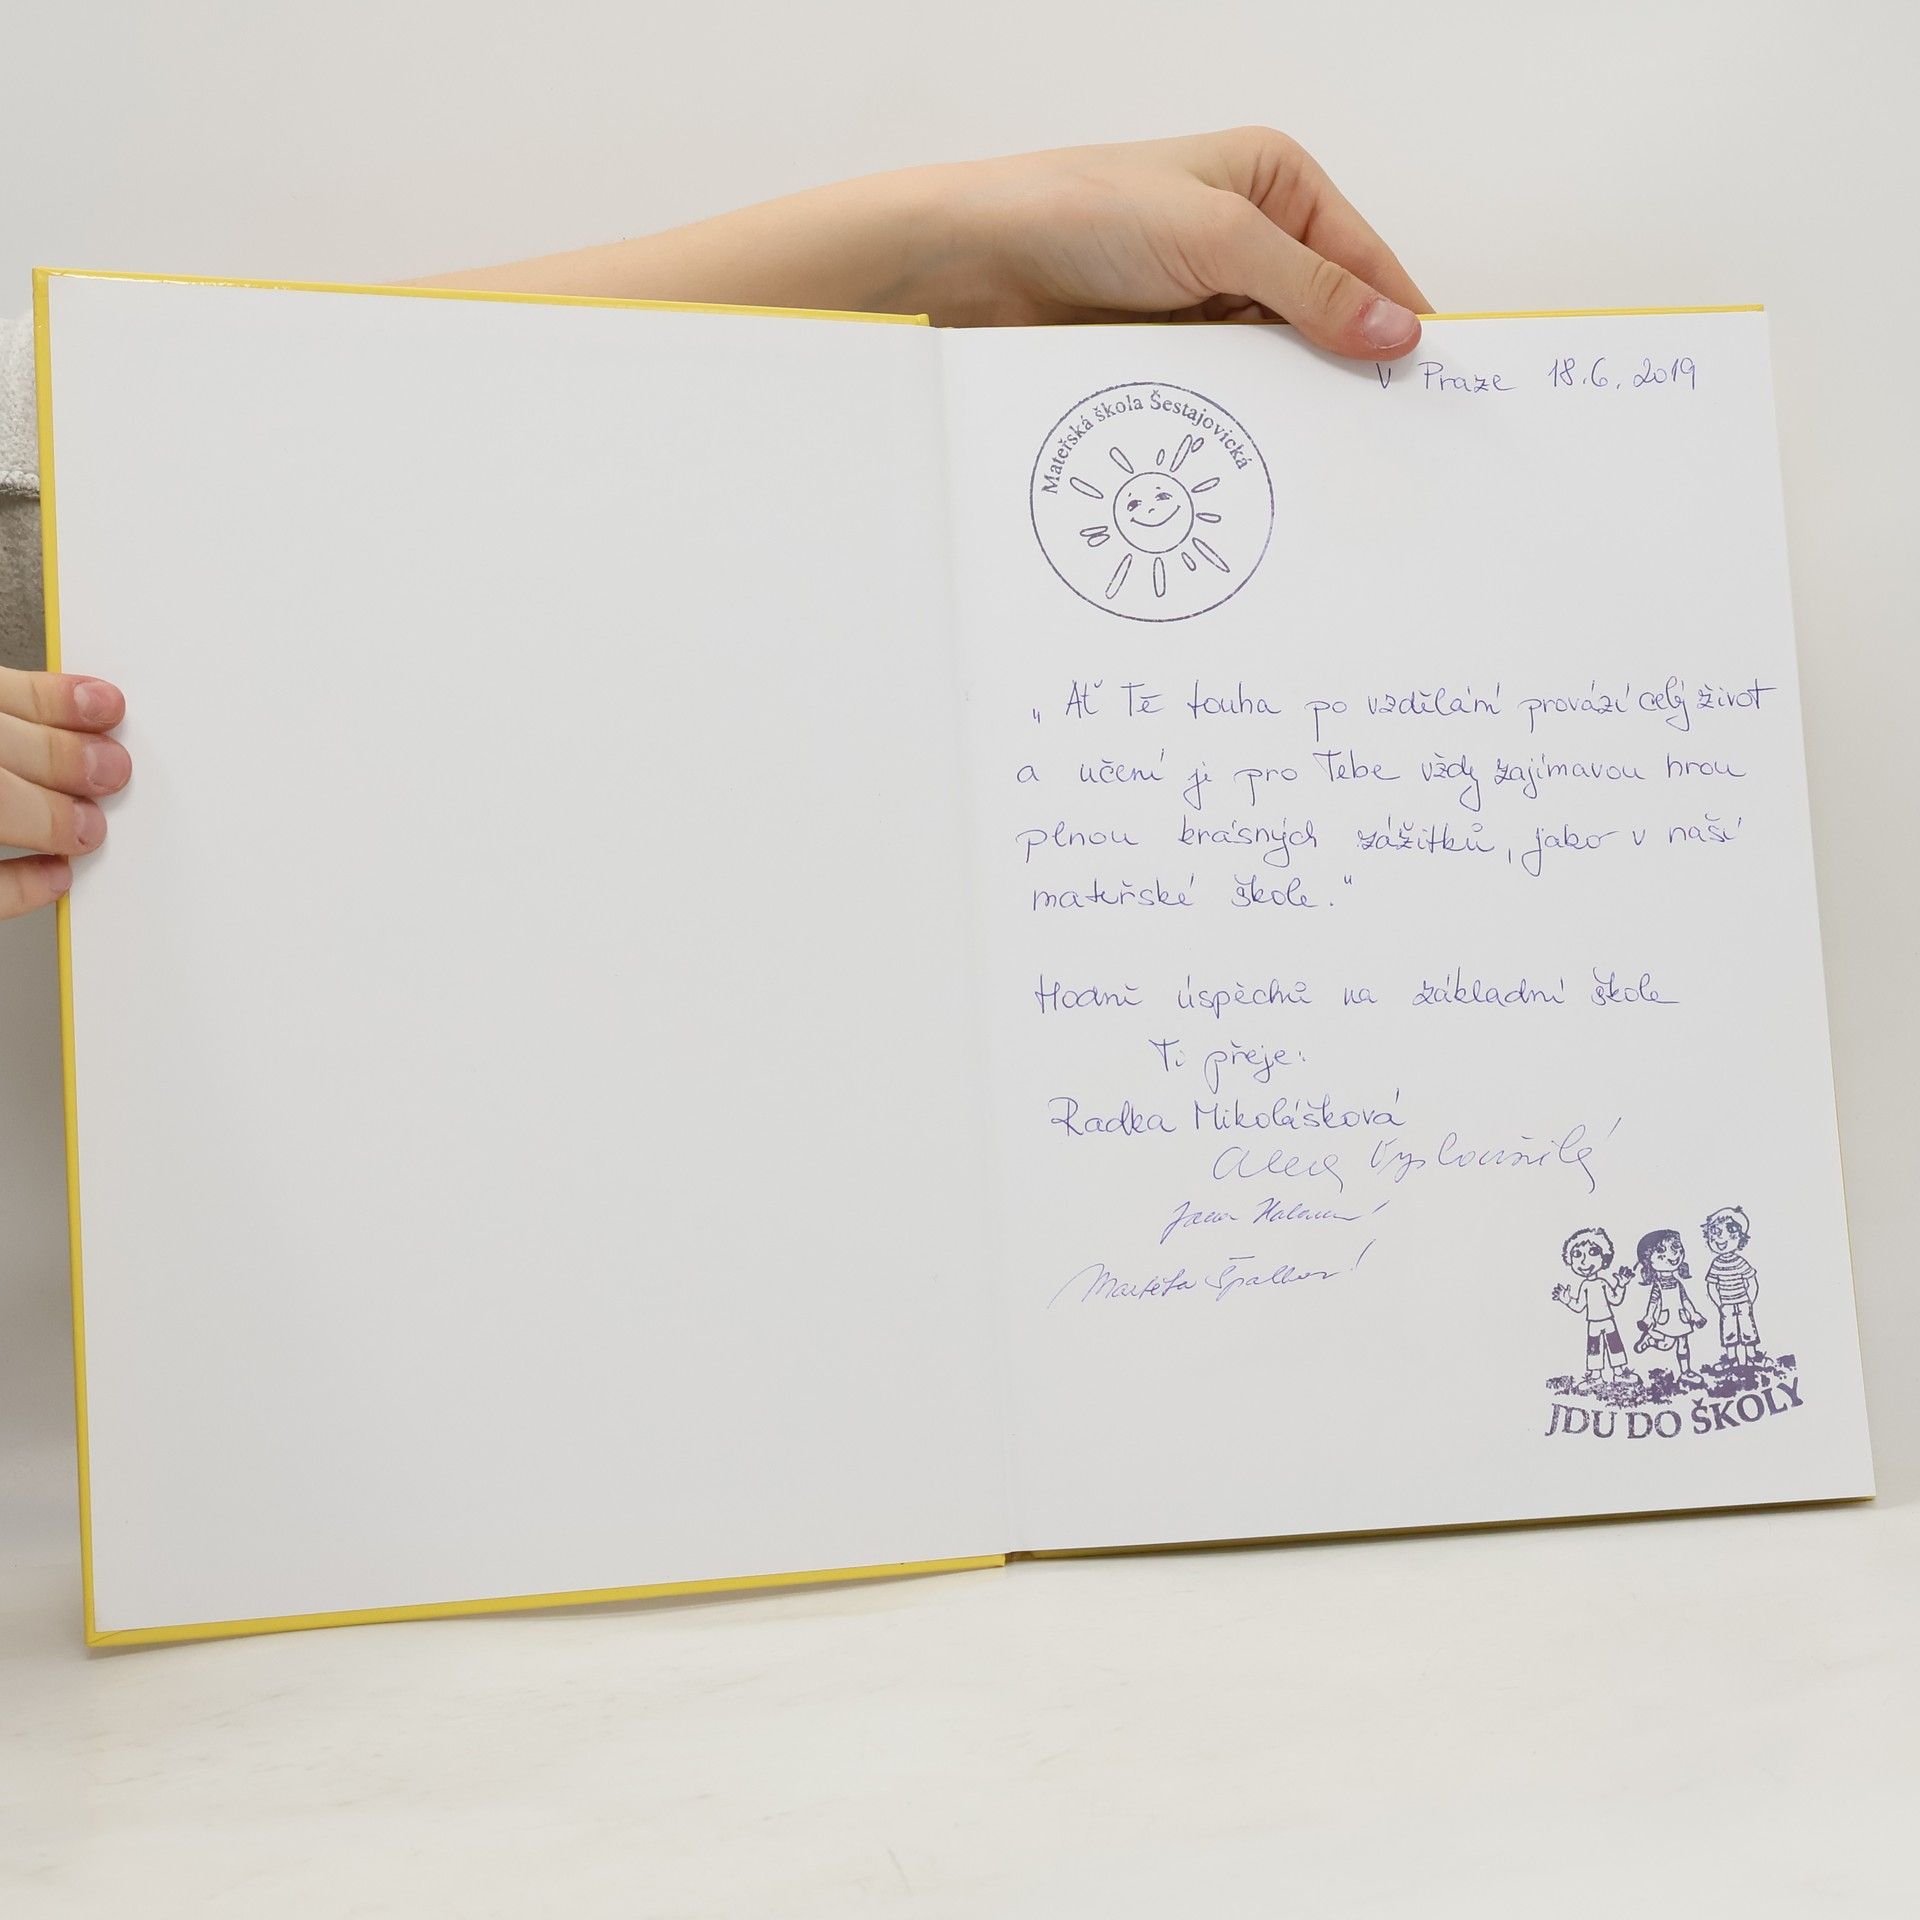 V Praze 18.6.2019
Mateřská škola Šestajovická
„Ať Tě touha po vzdělání provází celý život
a učení je pro Tebe vždy zajímavou hrou
plnou krásných zážitků, jako v naší
mateřské škole."
Hodně úspěchů na základní škole
Ti přeje:
Radka Mikolášková
Vyskoušilá
Jana
Markéta
JDU DO ŠKOLY